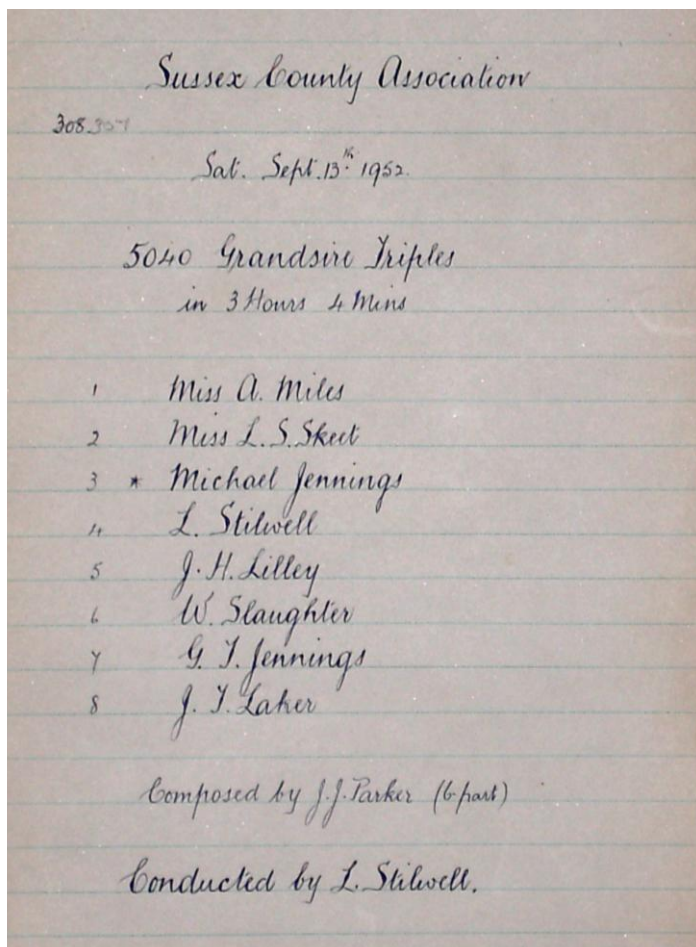 Sussex County Association
308
Sat. Sept. 13th 1952.
5040 Grandsire Triples
in 3 Hours 4 Mins
1 Miss A. Miles
2 Miss L. S. Skeet
3 * Michael Jennings
4 L. Stilwell
5 J. H. Lilley
6 W. Slaughter
7 G. T. Jennings
8 J. T. Laker
Composed by J. J. Parker (6-part)
Conducted by L. Stilwell.